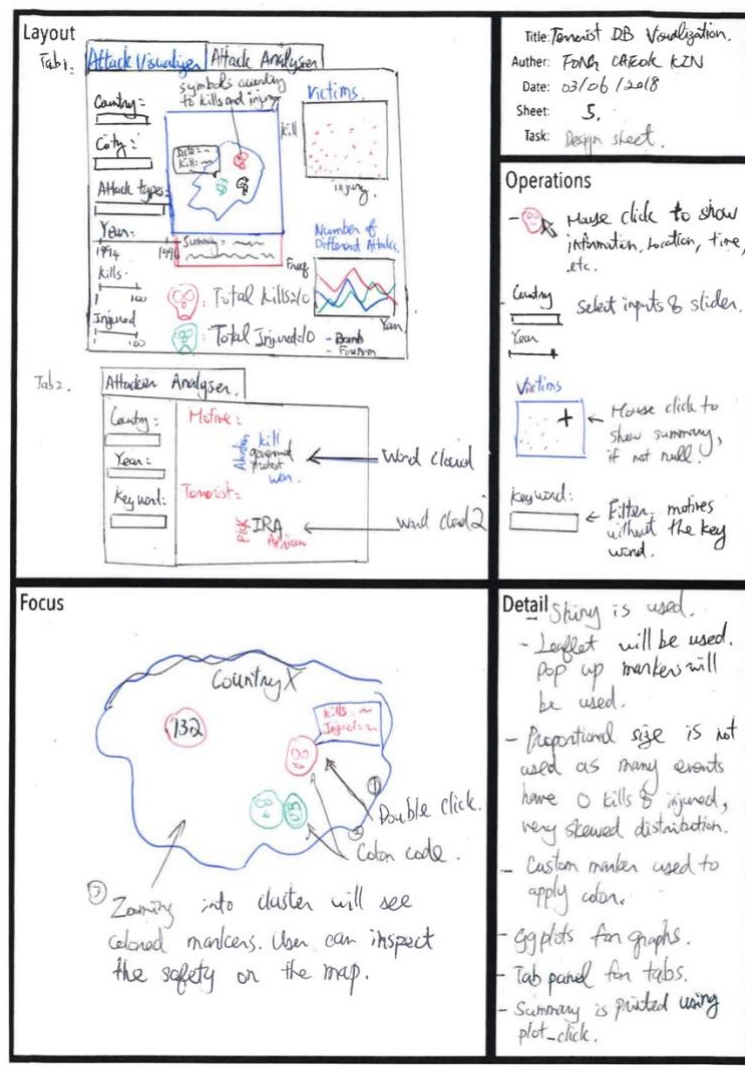 Layout
Tab1:
Attack Visualizer
Attack Analyser
symbols according
to kills and injury
Country:
City:
Attack types:
Year:
1994
Kills:
1 100
Injured
1 100
Date: ~
Kill: ~
Summary: ~
Victims.
Kill
injury
Number of
Different Attacks.
Freq
Year
- Bomb
- Firearm
: Total Kills≥10
: Total Injured≥10
Tab2.
Attacker Analyser.
Country:
Year:
Keyword:
Motive:
kill
government
protest
won.
Word cloud
Terrorist:
IRA
Word cloud 2
Title: Terrorist DB Visualization.
Auther:
Date: 03/06/2018
Sheet: 5.
Task: Design sheet.
Operations
- Mouse click to show
information, location, time,
etc.
- Country
Year
Select inputs & slider.
Victims
Mouse click to
show summary,
if not null.
Keyword:
Filter motives
without the key
word.
Focus
Country X
132
Kills: ~
Injured: ~
①
Double click.
②
Color code.
③ Zooming into cluster will see
colored markers. User can inspect
the safety on the map.
Detail
Shiny is used.
- Leaflet will be used.
Pop up markers will
be used.
- Proportional size is not
used as many events
have 0 kills & injured,
very skewed distribution.
- Custom marker used to
apply color.
- ggplots for graphs.
- Tab panel for tabs.
- Summary is printed using
plot_click.